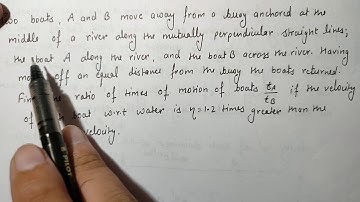 boats, A and B move away from a buoy anchored at the
middle of a river along the mutually perpendicular straight lines;
the boat A along the river, and the boat B across the river. Having
off an equal distance from the buoy the boats returned.
ratio of times of motion of boats tA/tB if the velocity
of boat w.r.t water is η=1.2 times greater than the
velocity.
PILOT